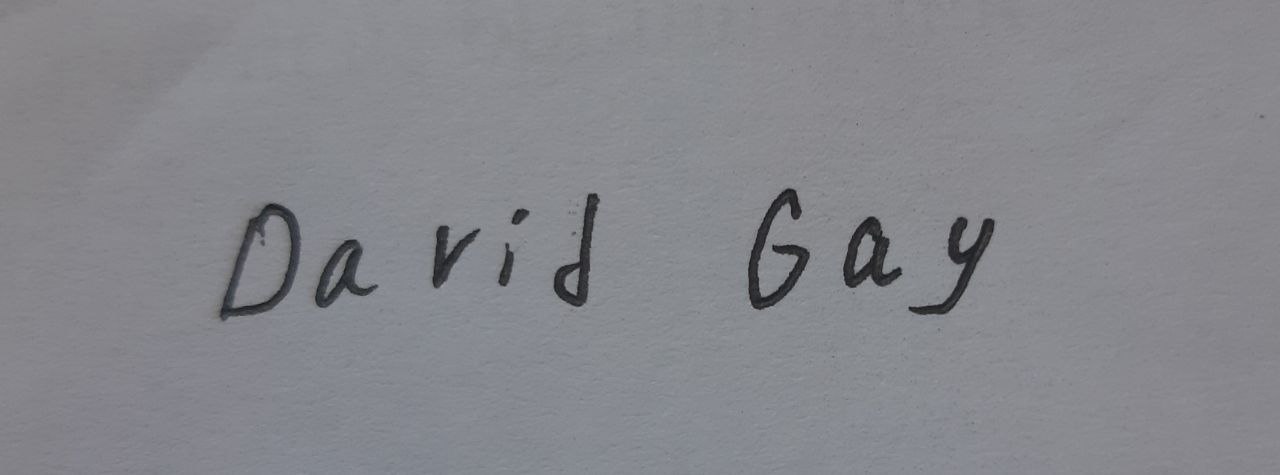 David Gay